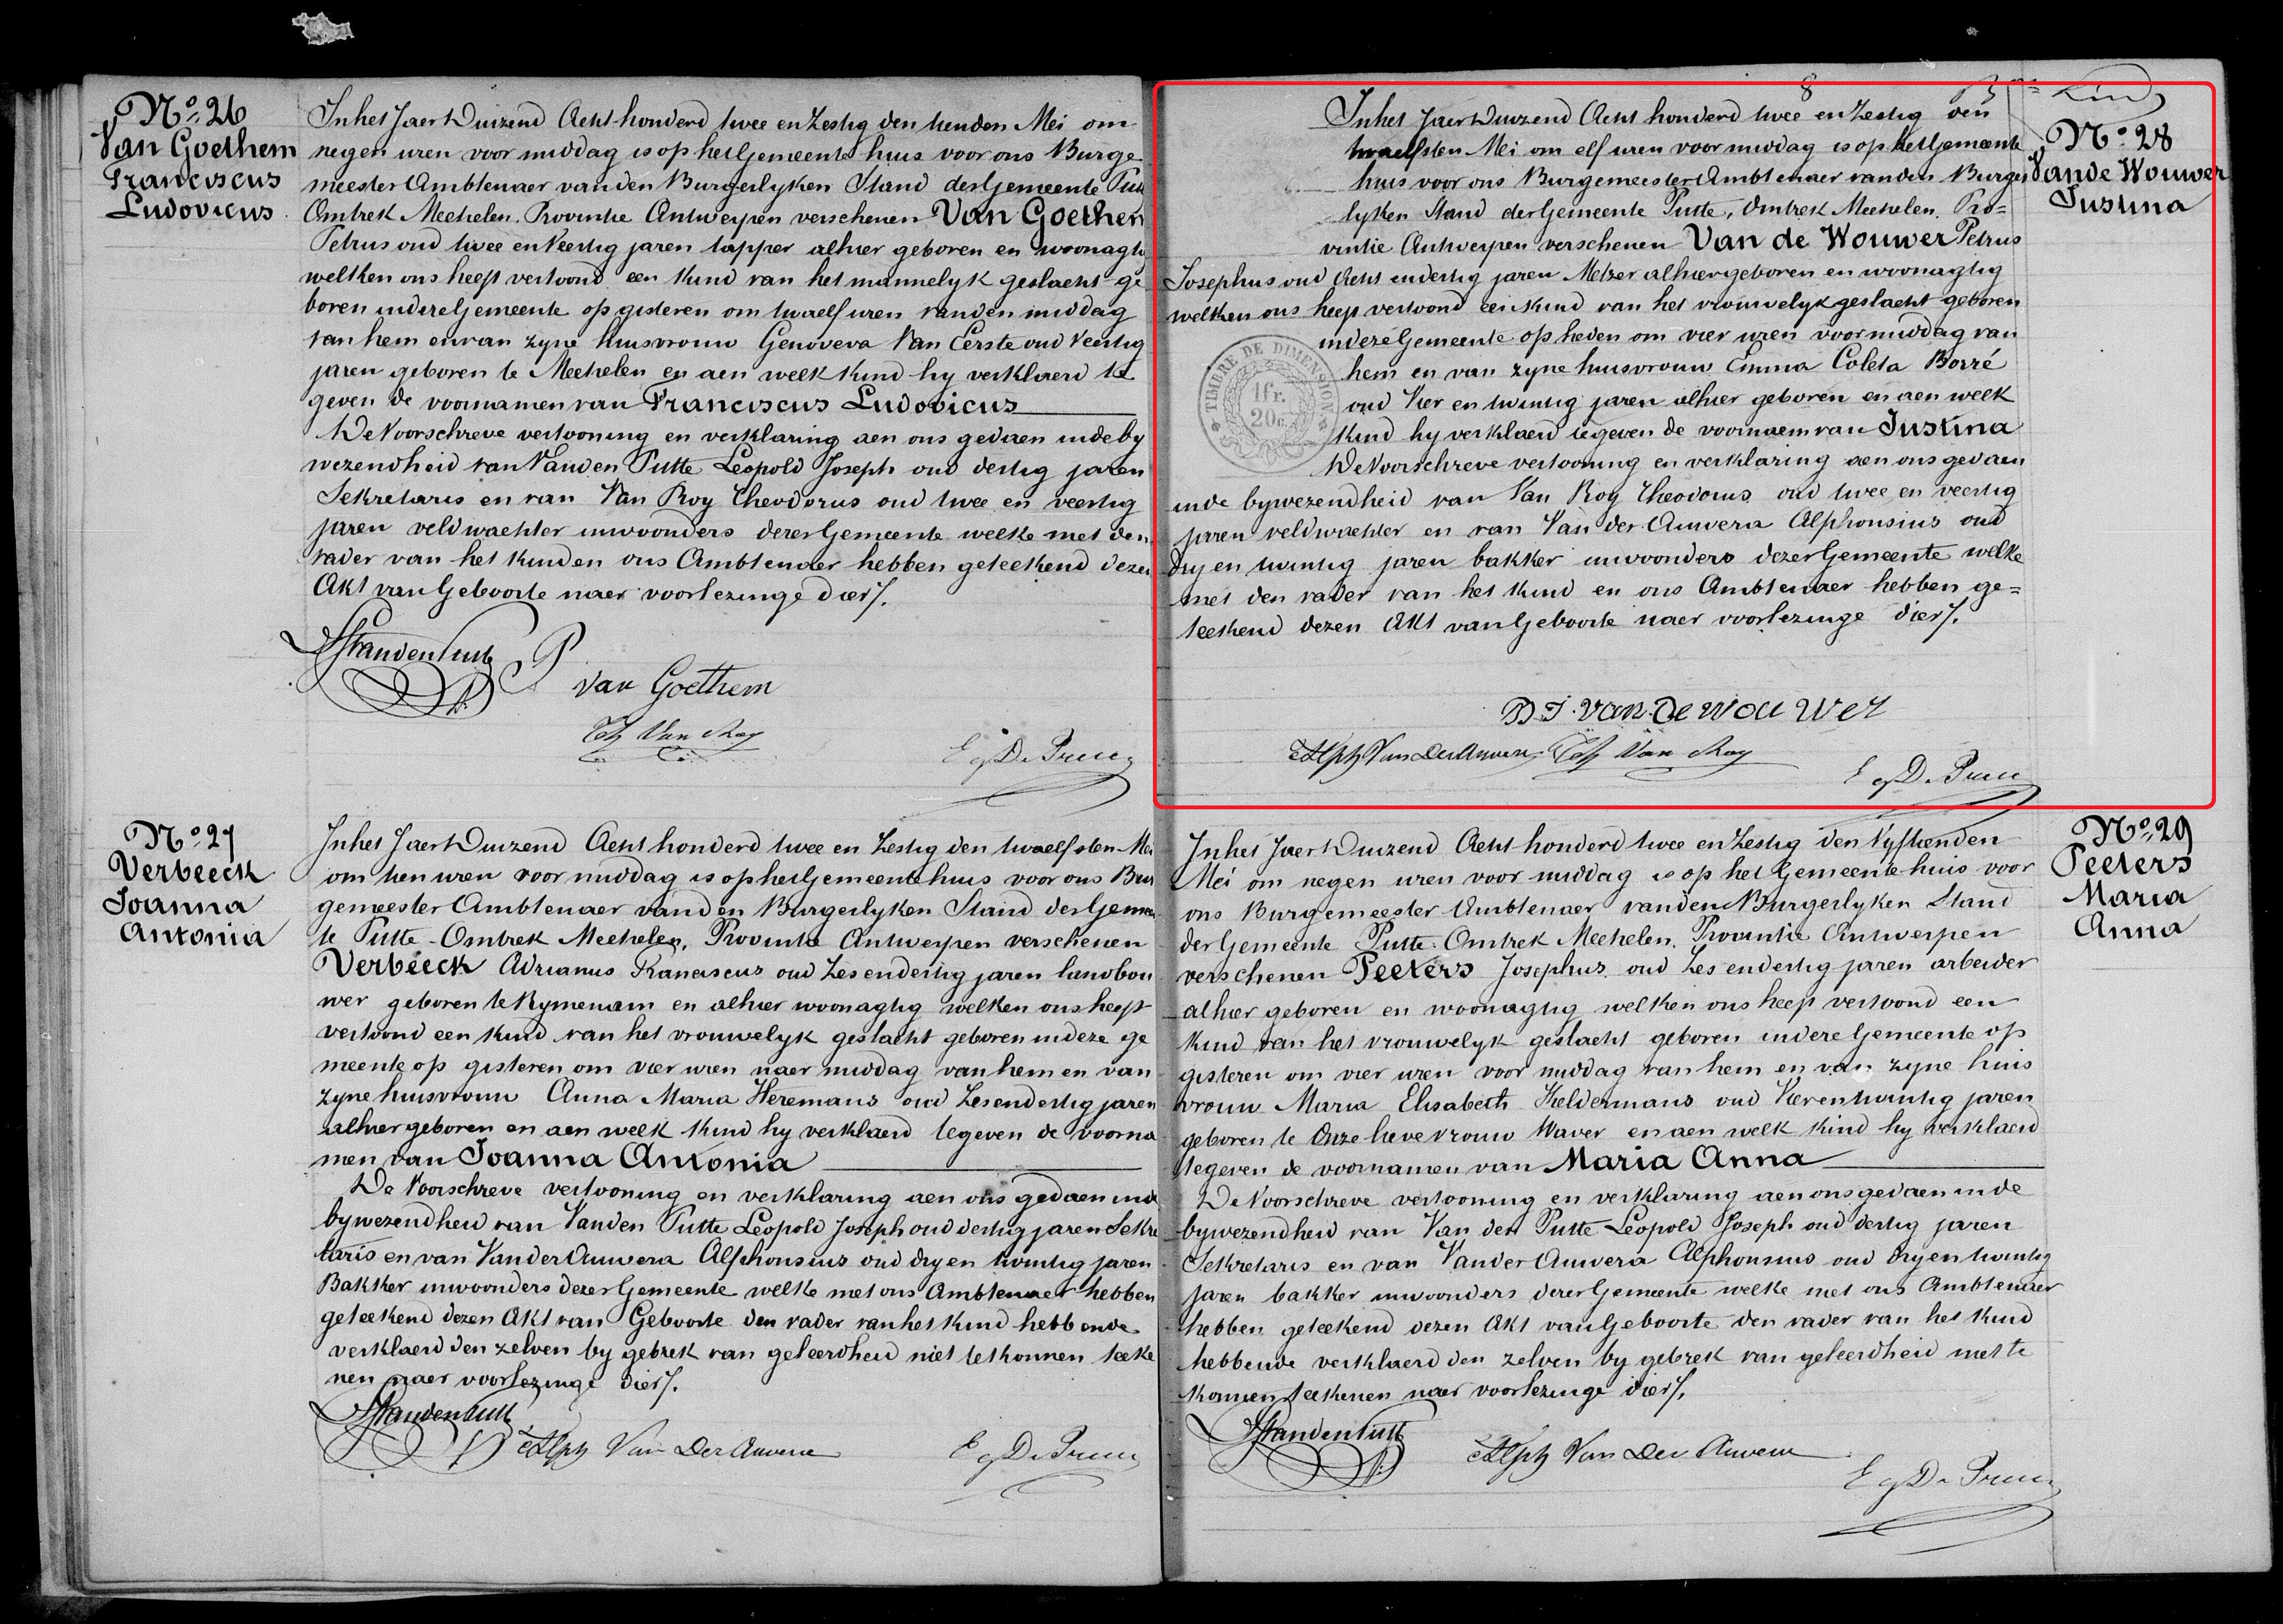 Nº 26
Van Goethem
Franciscus
Ludovicus
In het Jaer Duizend Acht honderd twee en Zestig den tienden Mei om
negen uren voor middag is op het Gemeente huis voor ons Burge
meester Ambtenaer van den Burgerlyken Stand der Gemeente Putte
Omtrek Mechelen. Provintie Antwerpen verschenen Van Goethem
Petrus oud twee en Veertig jaren tapper alhier geboren en woonagtig
welken ons heeft vertoond een kind van het mannelyk geslacht ge
boren in deze Gemeente op gisteren om twaelf uren van den middag
van hem en van zyne huisvrouw Genoveva Van Eerste oud Veertig
jaren geboren te Mechelen en aen welk kind hy verklaerd te
geven de voornamen van Franciscus Ludovicus
De Voorschreve vertooning en verklaring aen ons gedaen in de by
wezendheid van Vanden Putte Leopold Joseph oud dertig jaren
Sekretaris en van Van Roy Theodorus oud twee en veertig
jaren veldwachter inwoonders dezer Gemeente welke met den
vader van het kind en ons Ambtenaer hebben geteekend dezen
Akt van Geboorte naer voorlezinge dier/.
Van Goethem
Th Van Roy
Nº 27
Verbeeck
Joanna
Antonia
In het Jaer Duizend Acht honderd twee en Zestig den twaelfsten Mei
om tien uren voor middag is op het Gemeente huis voor ons Bur
gemeester Ambtenaer van den Burgerlyken Stand der Gemeen
te Putte Omtrek Mechelen, Provintie Antwerpen verschenen
Verbeeck Adrianus Franciscus oud Zes en dertig jaren landbou
wer geboren te Rymenam en alhier woonagtig welken ons heeft
vertoond een kind van het vrouwelyk geslacht geboren in deze ge
meente op gisteren om vier uren naer middag van hem en van
zyne huisvrouw Anna Maria Heremans oud Zes en dertig jaren
alhier geboren en aen welk kind hy verklaerd te geven de voorna
men van Joanna Antonia
De Voorschreve vertooning en verklaring aen ons gedaen in de
bywezendheid van Vanden Putte Leopold Joseph oud dertig jaren Sekre
taris en van Van der Auwera Alphonsius oud dry en twintig jaren
Bakker inwoonders dezer Gemeente welke met ons Ambtenaer hebben
geteekend dezen Akt van Geboorte den vader van het kind hebbende
verklaerd den zelven by gebrek van geleerdheid niet te konnen teeke
nen naer voorlezinge dier/.
Alph Van Der Auwera
8
In het Jaer Duizend Acht honderd twee en Zestig den
twaelfsten Mei om elf uren voor middag is op het Gemeente
huis voor ons Burgemeester Ambtenaer van den Burger
lyken Stand der Gemeente Putte, Omtrek Mechelen. Pro=
vintie Antwerpen verschenen Van de Wouwer Petrus
Josephus oud Acht en dertig jaren Metzer alhier geboren en woonagtig
welken ons heeft vertoond een kind van het vrouwelyk geslacht geboren
in deze Gemeente op heden om vier uren voormiddag van
hem en van zyne huisvrouw Emma Coleta Borré
oud Vier en twintig jaren alhier geboren en aen welk
kind hy verklaerd te geven de voornaem van Justina
De Voorschreve vertooning en verklaring aen ons gedaen
in de bywezendheid van Van Roy Theodorus oud twee en veertig
jaren veldwachter en van Van der Auwera Alphonsius oud
dry en twintig jaren bakker inwoonders dezer Gemeente welke
met den vader van het kind en ons Ambtenaer hebben ge=
teekend dezen Akt van Geboorte naer voorlezinge dier/.
TIMBRE DE DIMENSION
1 fr.
20 c.
P. J. Van. De Wou Wer
Alph Van Der Auwera Th Van Roy
Nº 28
Van de Wouwer
Justina
In het Jaer Duizend Acht honderd twee en Zestig den Vyftienden
Mei om negen uren voor middag is op het Gemeente huis voor
ons Burgemeester Ambtenaer van den Burgerlyken Stand
der Gemeente Putte. Omtrek Mechelen. Provintie Antwerpen
verschenen Peeters Josephus oud Zes en dertig jaren arbeider
alhier geboren en woonagtig welken ons heeft vertoond een
kind van het vrouwelyk geslacht geboren in deze Gemeente op
gisteren om vier uren voor middag van hem en van zyne huis
vrouw Maria Elisabeth Keldermans oud Vier en twintig jaren
geboren te Onze lieve vrouw Waver en aen welk kind hy verklaerd
te geven de voornamen van Maria Anna
De Voorschreve vertooning en verklaring aen ons gedaen in de
bywezendheid van Van den Putte Leopold Joseph oud dertig jaren
Sekretaris en van Van der Auwera Alphonsius oud dry en twintig
jaren bakker inwoonders dezer Gemeente welke met ons Ambtenaer
hebben geteekend dezen Akt van Geboorte den vader van het kind
hebbende verklaerd den zelven by gebrek van geleerdheid niet te
konnen teekenen naer voorlezinge dier/.
Alph Van Der Auwera
Nº 29
Peeters
Maria
Anna